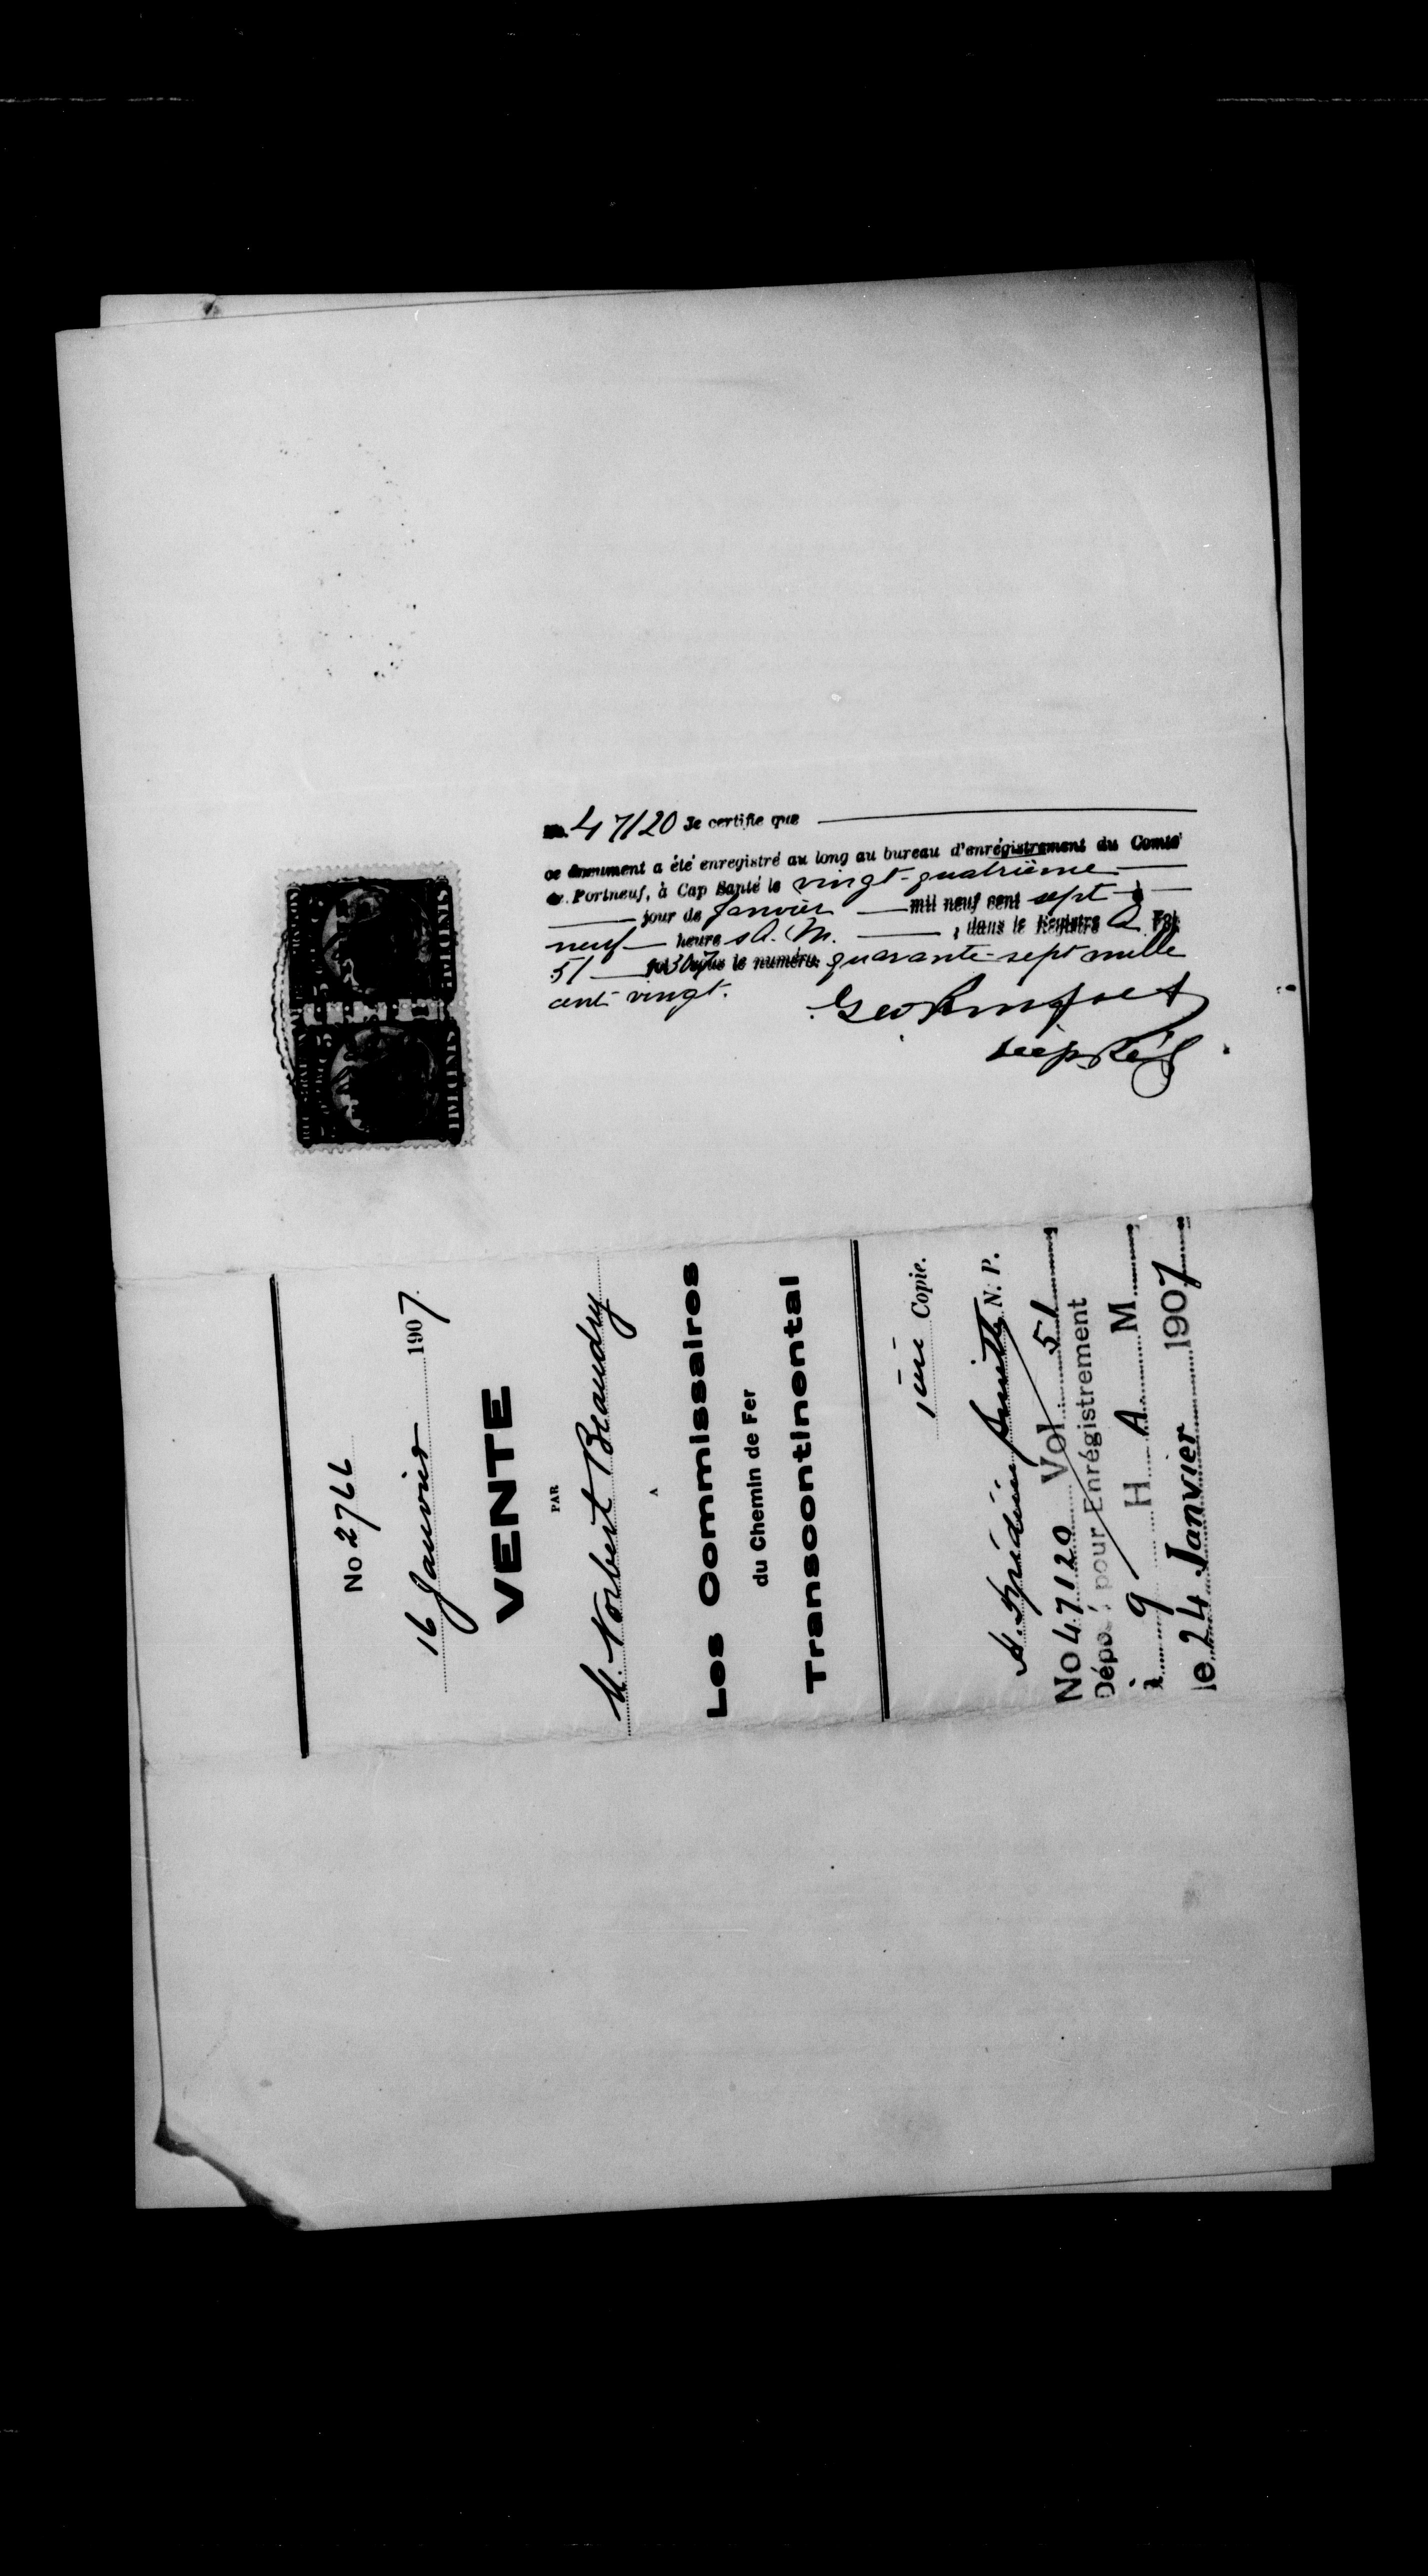 No. 47120 Je certifie que
ce document a été enregistré au long au bureau d'enrégistrement du Comté
de Portneuf, à Cap Santé le vingt-quatrième
jour de Janvier mil neuf cent sept à
neuf heures A. M. , dans le Registre Vol.
51 sous le numéro quarante-sept mille
cent vingt.
Dép Rég
No 2766
16 Janvier 1907
VENTE
PAR
M. Norbert Beaudry
A
Les Commissaires
du Chemin de Fer
Transcontinental
1ère Copie.
Smith N. P.
No 47120 Vol 51
Déposé pour Enrégistrement
à 9 H A M
le 24 Janvier 1907